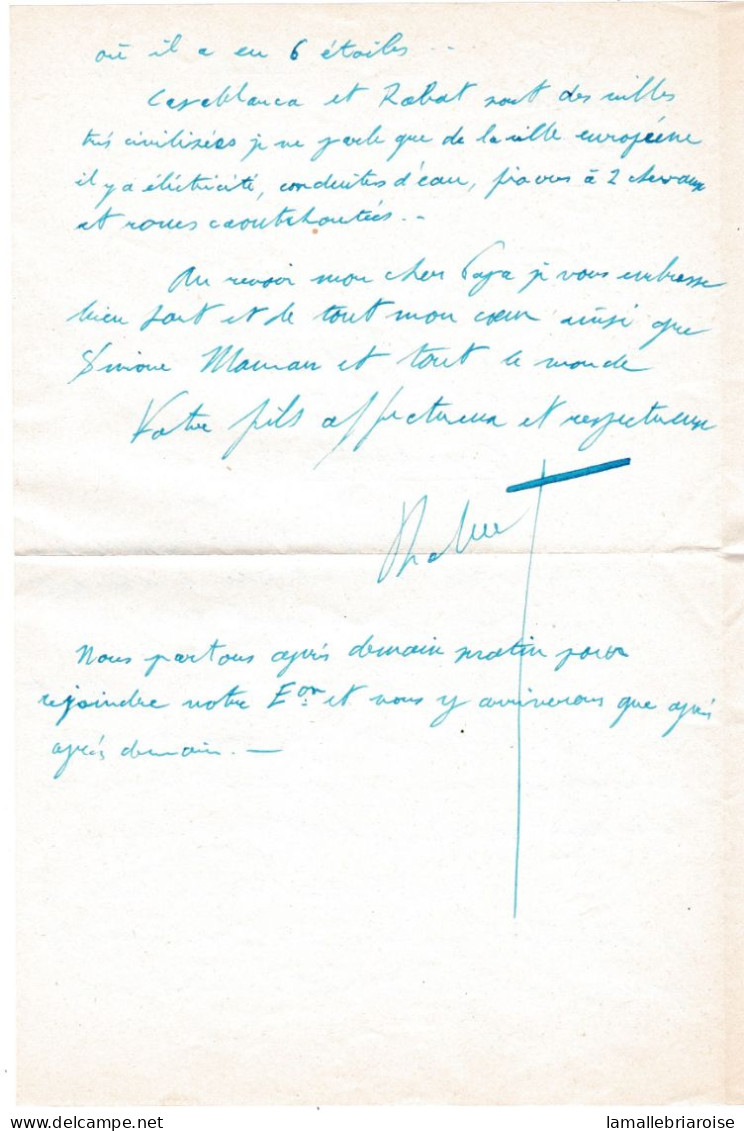 où il a eu 6 étoiles..
Casablanca et Rabat sont des villes
très civilisées je ne parle que de la ville européene
il y a éléctricité, conduites d'eau, fiacres à 2 chevaux
et roues caoutchoutées..
Au revoir mon cher Papa je vous embrasse
bien fort et de tout mon cœur ainsi que
Simone Maman et tout le monde
Votre fils affectueux et respectueux
Nous partons après demain matin pour
rejoindre notre Eon et nous y arriverons que après
après demain. —
lamallebriaroise